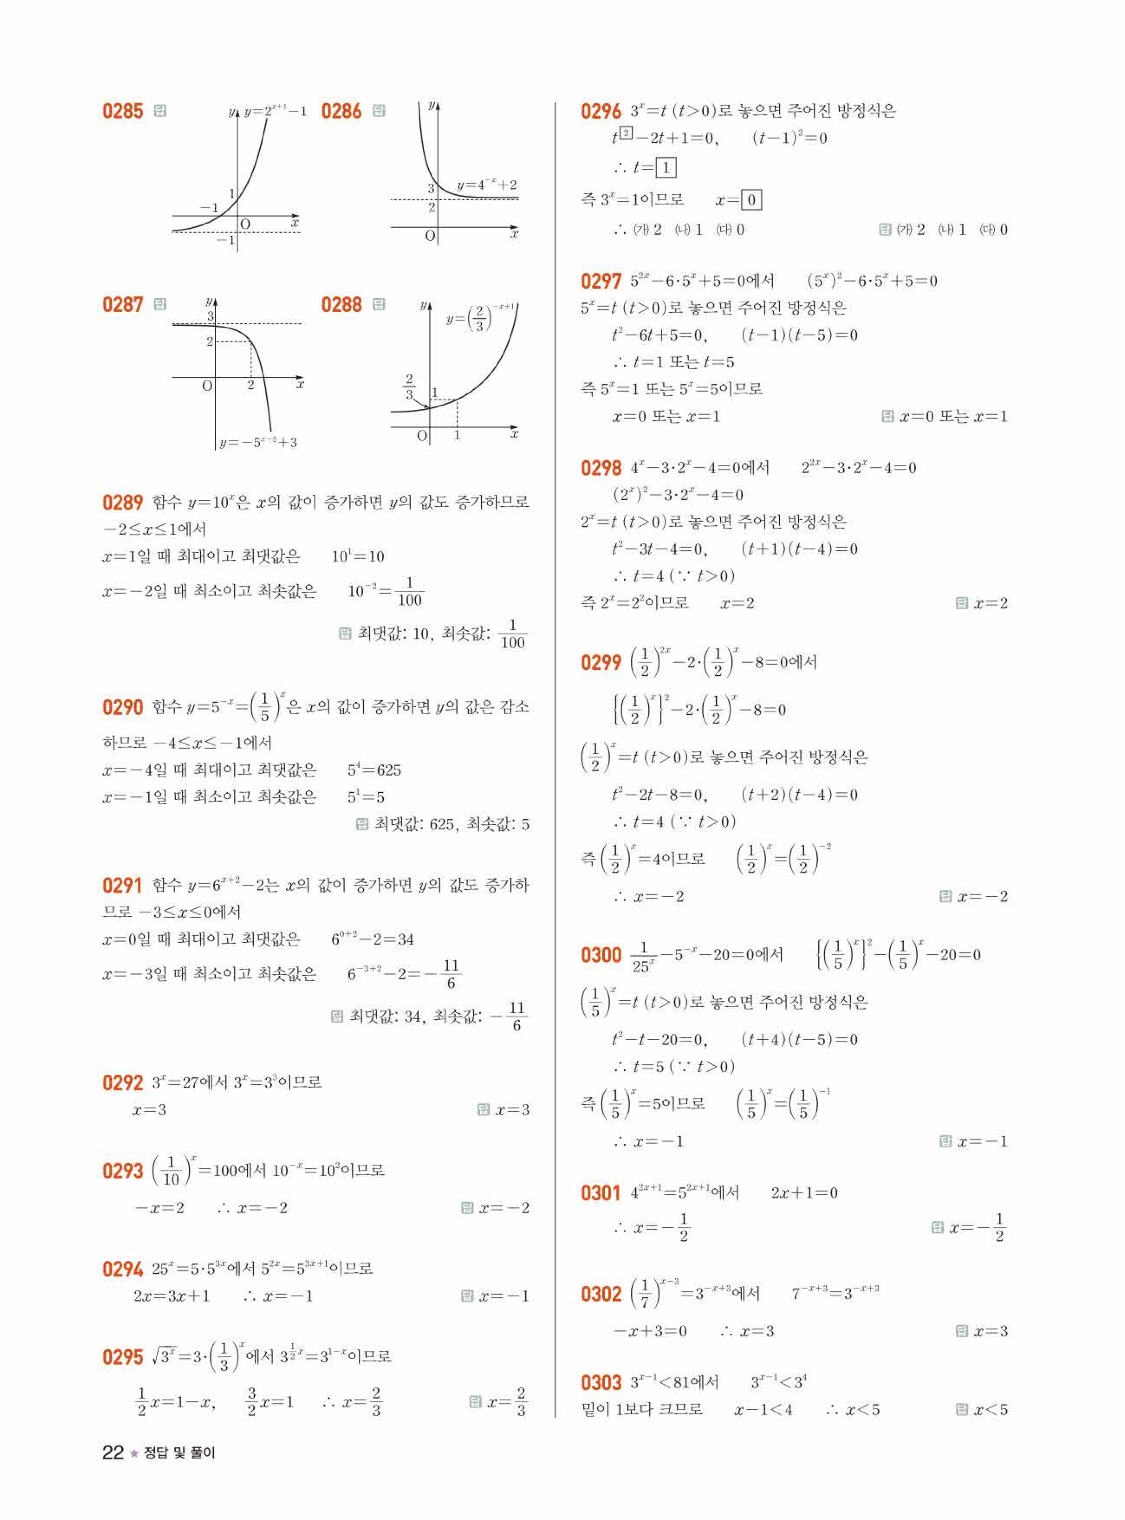 0285 답
y
y=2^{x+1}-1
1
-1
O
x
-1
0286 답
y
3
y=4^{-x}+2
2
O
x
0287 답
y
3
2
O
2
x
y=-5^{x-2}+3
0288 답
y
y=(2/3)^{-x+1}
2/3
1
O
1
x
0289 함수 y=10^x은 x의 값이 증가하면 y의 값도 증가하므로
-2≤x≤1에서
x=1일 때 최대이고 최댓값은 10^1=10
x=-2일 때 최소이고 최솟값은 10^{-2}=1/100
답 최댓값: 10, 최솟값: 1/100
0290 함수 y=5^{-x}=(1/5)^x은 x의 값이 증가하면 y의 값은 감소
하므로 -4≤x≤-1에서
x=-4일 때 최대이고 최댓값은 5^4=625
x=-1일 때 최소이고 최솟값은 5^1=5
답 최댓값: 625, 최솟값: 5
0291 함수 y=6^{x+2}-2는 x의 값이 증가하면 y의 값도 증가하
므로 -3≤x≤0에서
x=0일 때 최대이고 최댓값은 6^{0+2}-2=34
x=-3일 때 최소이고 최솟값은 6^{-3+2}-2=-11/6
답 최댓값: 34, 최솟값: -11/6
0292 3^x=27에서 3^x=3^3이므로
x=3 답 x=3
0293 (1/10)^x=100에서 10^{-x}=10^2이므로
-x=2 ∴ x=-2 답 x=-2
0294 25^x=5·5^{3x}에서 5^{2x}=5^{3x+1}이므로
2x=3x+1 ∴ x=-1 답 x=-1
0295 √3^x=3·(1/3)^x에서 3^{1/2 x}=3^{1-x}이므로
1/2x=1-x, 3/2x=1 ∴ x=2/3 답 x=2/3
0296 3^x=t (t>0)로 놓으면 주어진 방정식은
t^2-2t+1=0, (t-1)^2=0
∴ t=1
즉 3^x=1이므로 x=0
∴ ㈎ 2 ㈏ 1 ㈐ 0 답 ㈎ 2 ㈏ 1 ㈐ 0
0297 5^{2x}-6·5^x+5=0에서 (5^x)^2-6·5^x+5=0
5^x=t (t>0)로 놓으면 주어진 방정식은
t^2-6t+5=0, (t-1)(t-5)=0
∴ t=1 또는 t=5
즉 5^x=1 또는 5^x=5이므로
x=0 또는 x=1 답 x=0 또는 x=1
0298 4^x-3·2^x-4=0에서 2^{2x}-3·2^x-4=0
(2^x)^2-3·2^x-4=0
2^x=t (t>0)로 놓으면 주어진 방정식은
t^2-3t-4=0, (t+1)(t-4)=0
∴ t=4 (∵ t>0)
즉 2^x=2^2이므로 x=2 답 x=2
0299 (1/2)^{2x}-2·(1/2)^x-8=0에서
{(1/2)^x}^2-2·(1/2)^x-8=0
(1/2)^x=t (t>0)로 놓으면 주어진 방정식은
t^2-2t-8=0, (t+2)(t-4)=0
∴ t=4 (∵ t>0)
즉 (1/2)^x=4이므로 (1/2)^x=(1/2)^{-2}
∴ x=-2 답 x=-2
0300 1/25^x-5^{-x}-20=0에서 {(1/5)^x}^2-(1/5)^x-20=0
(1/5)^x=t (t>0)로 놓으면 주어진 방정식은
t^2-t-20=0, (t+4)(t-5)=0
∴ t=5 (∵ t>0)
즉 (1/5)^x=5이므로 (1/5)^x=(1/5)^{-1}
∴ x=-1 답 x=-1
0301 4^{2x+1}=5^{2x+1}에서 2x+1=0
∴ x=-1/2 답 x=-1/2
0302 (1/7)^{x-3}=3^{-x+3}에서 7^{-x+3}=3^{-x+3}
-x+3=0 ∴ x=3 답 x=3
0303 3^{x-1}<81에서 3^{x-1}<3^4
밑이 1보다 크므로 x-1<4 ∴ x<5 답 x<5
22 ★ 정답 및 풀이